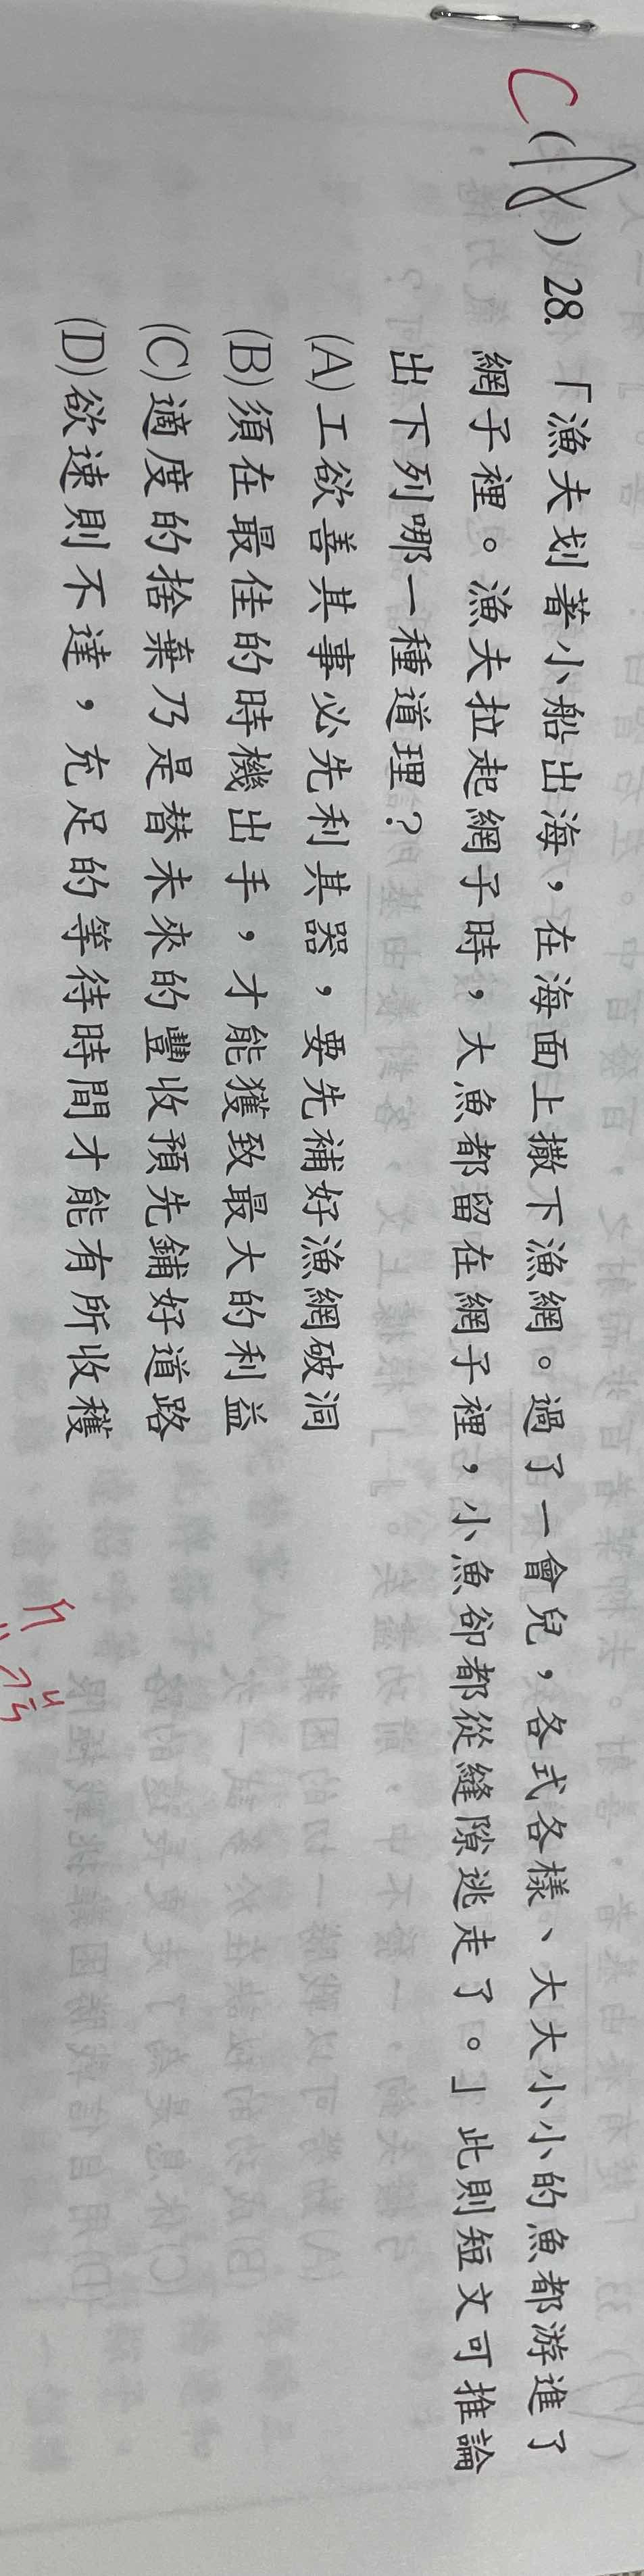 C ( ) 28.「漁夫划著小船出海，在海面上撒下漁網。過了一會兒，各式各樣、大大小小的魚都游進了
網子裡。漁夫拉起網子時，大魚都留在網子裡，小魚卻都從縫隙逃走了。」此則短文可推論
出下列哪一種道理？
(A)工欲善其事必先利其器，要先補好漁網破洞
(B)須在最佳的時機出手，才能獲致最大的利益
(C)適度的捨棄乃是替未來的豐收預先鋪好道路
(D)欲速則不達，充足的等待時間才能有所收穫